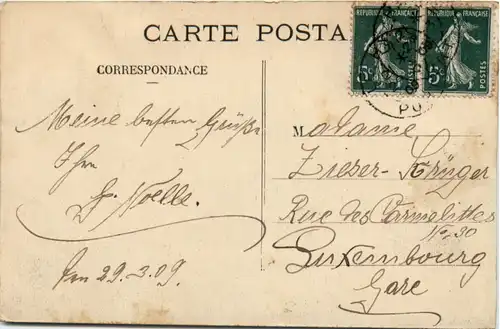 CARTE POSTA
RÉPUBLIQUE FRANÇAISE
5c
POSTES
RÉPUBLIQUE FRANÇAISE
5c
POSTES
CORRESPONDANCE
Meine besten Grüße
Ihr
Noelle.
Am 29.3.09.
Madame
Zieser-Krüger
Rue des Carmelittes
No. 30
Luxembourg
Gare